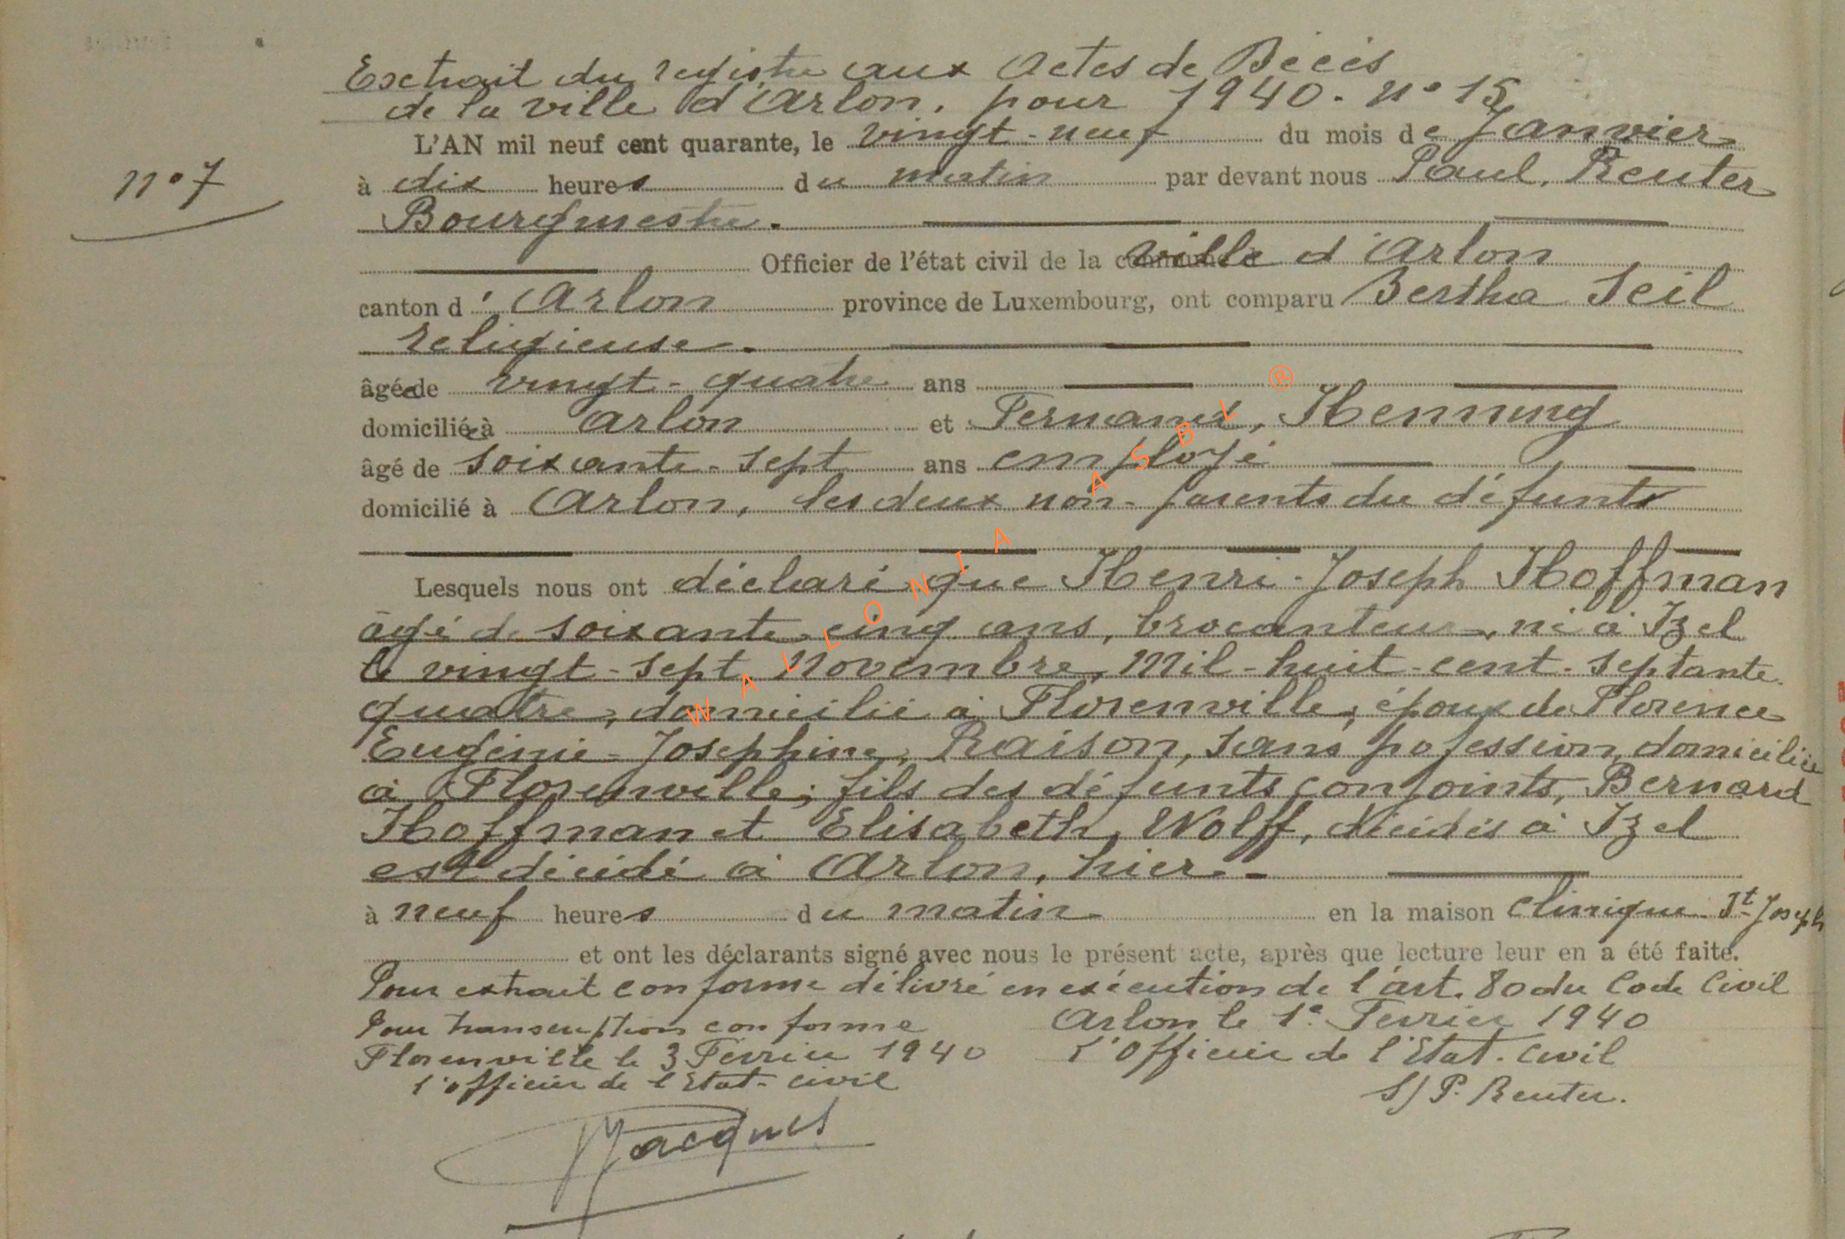 Extrait du registre aux Actes de Décès
de la ville d'Arlon. pour 1940. n° 15
L'AN mil neuf cent quarante, le vingt-neuf du mois de Janvier
n° 7
à dix heures du matin par devant nous Paul, Reuter
Bourgmestre.
Officier de l'état civil de la ville d'Arlon
canton d'Arlon province de Luxembourg, ont comparu Bertha Seil
religieuse.
âgée de vingt-quatre ans
domiciliée à Arlon et Fernand, Henning
âgé de soixante-sept ans employé
domicilié à Arlon, les deux non-parents du défunt
Lesquels nous ont déclaré que Henri-Joseph Hoffman
âgé de soixante cinq ans, brocanteur, né à Izel
le vingt-sept Novembre, Mil-huit-cent-septante
quatre, domicilié à Florenville, époux de Florence
Eugénie-Josephine, Raison, sans pofession, domiciliée
à Florenville; fils des défunts conjoints, Bernard
Hoffman et Elisabeth, Wolff, décédés à Izel
est décédé à Arlon, hier.
à neuf heures du matin en la maison clinique St-Joseph
et ont les déclarants signé avec nous le présent acte, après que lecture leur en a été faite.
Pour extrait conforme délivré en exécution de l'art. 80 du Code Civil
Pour transcription conforme Arlon le 1e Février 1940
Florenville le 3 Février 1940 L'Officier de l'Etat-Civil
l'officier de l'Etat-civil S/ P. Reuter.
Jacques
WALLONIA ASBL ®